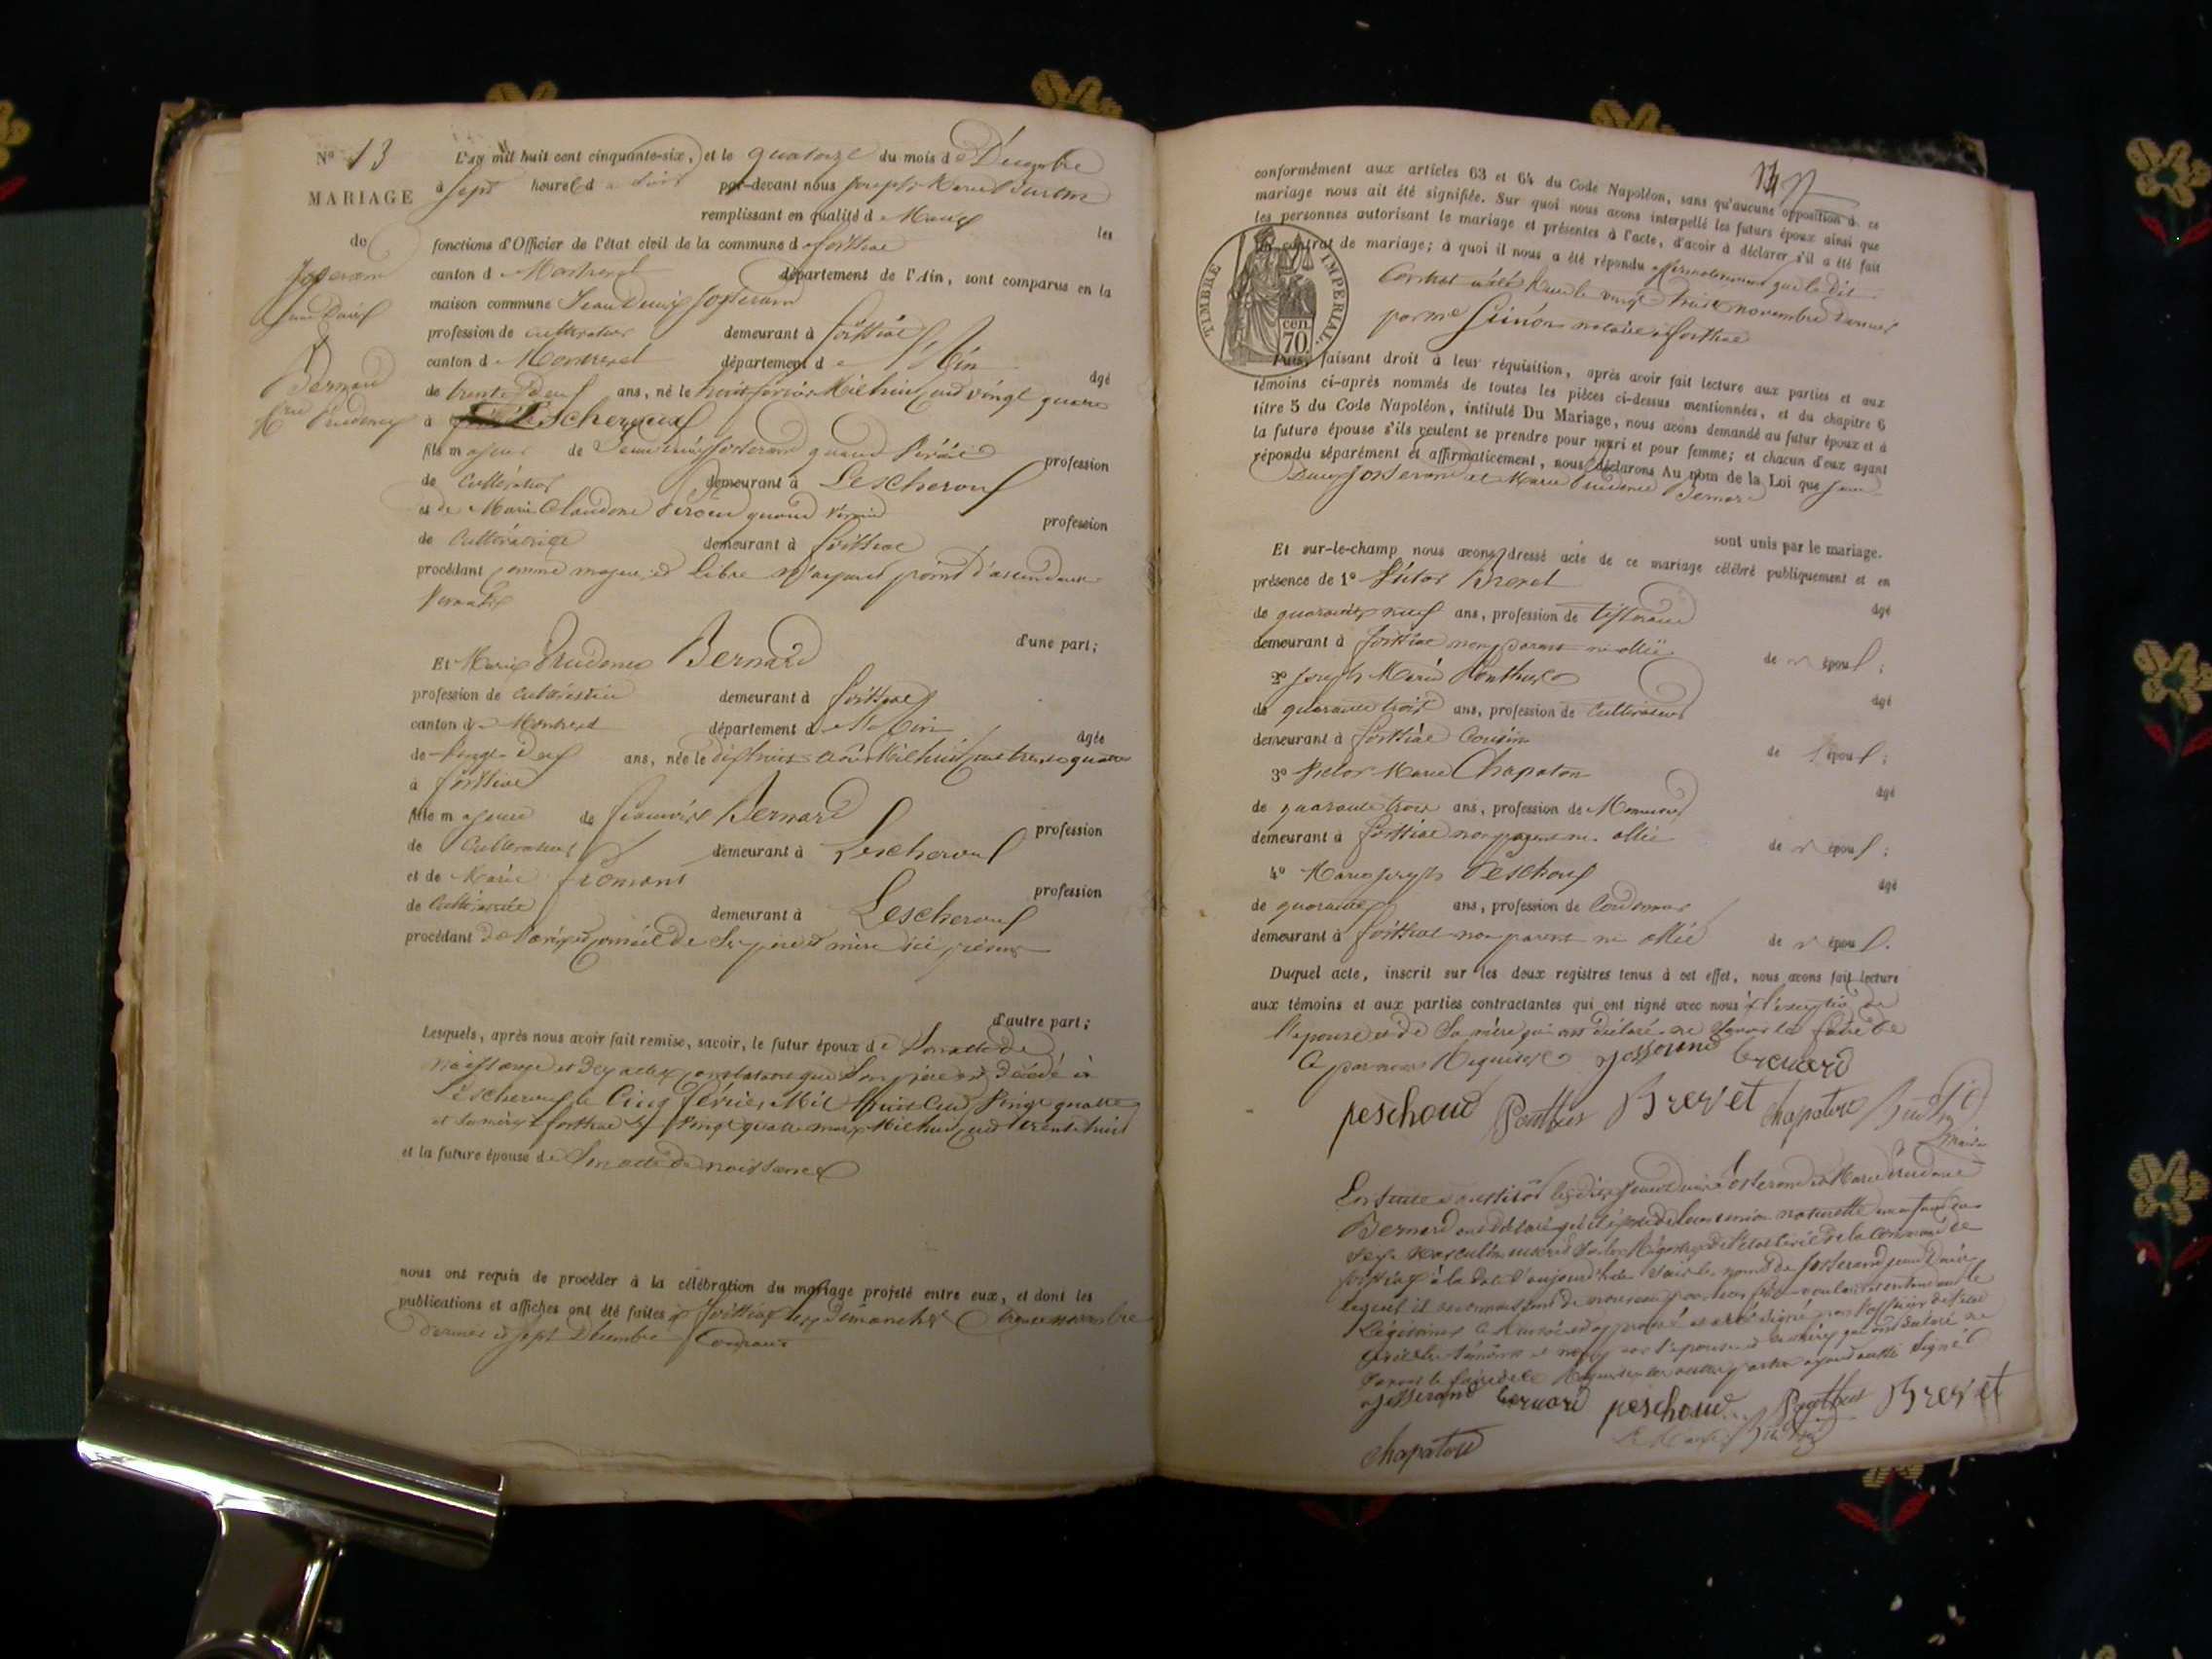 N° 13
MARIAGE
de
Josserand
Jean Denis
&
Bernard
Mie Prudence
L'an mil huit cent cinquante-six, et le quatorze du mois de Décembre
à sept heures du soir par-devant nous Joseph Marie
remplissant en qualité de Maire les
fonctions d'Officier de l'état civil de la commune de foissiat
canton de Montrevel département de l'Ain, sont comparus en la
maison commune Jean Denis Josserand
profession de cultivateur demeurant à foissiat
canton de Montrevel département de l'Ain âgé
de trente deux ans, né le huit février Mil huit cent vingt quatre
à Lescheroux
fils majeur de Jean Denis Josserand quand vivait profession
de cultivateur demeurant à Lescheroux
et de Marie Claudine quand vivait profession
de cultivatrice demeurant à foissiat
procédant comme majeur et libre n'ayant point d'ascendants
vivants
d'une part;
Et Marie Prudence Bernard
profession de cultivatrice demeurant à foissiat
canton de Montrevel département de l'Ain âgée
de vingt deux ans, née le dix huit août Mil huit cent trente quatre
à foissiat
fille majeure de françois Bernard profession
de Cultivateur demeurant à Lescheroux
et de Marie fromont profession
de Cultivatrice demeurant à Lescheroux
procédant de l'avis et conseil de ses père et mère ici présents
d'autre part;
Lesquels, après nous avoir fait remise, savoir, le futur époux de Son acte de
naissance et des actes constatant que Son père est décédé à
Lescheroux le Cinq février Mil huit Cent Vingt quatre
et sa mère à foissiat le Vingt quatre mars Mil huit cent trente huit
et la future épouse de Son acte de naissance
nous ont requis de procéder à la célébration du mariage projeté entre eux, et dont les
publications et affiches ont été faites à foissiat les Dimanches trente novembre
dernier et sept Décembre Courant
conformément aux articles 63 et 64 du Code Napoléon, sans qu'aucune opposition à ce
mariage nous ait été signifiée. Sur quoi nous avons interpellé les futurs époux ainsi que
les personnes autorisant le mariage et présentes à l'acte, d'avoir à déclarer s'il a été fait
un contrat de mariage; à quoi il nous a été répondu affirmativement que le dit
Contrat a été Reçu le vingt huit novembre dernier
par Me notaire à foissiat
TIMBRE IMPERIAL.
cen.
70.
Puis, faisant droit à leur réquisition, après avoir fait lecture aux parties et aux
témoins ci-après nommés de toutes les pièces ci-dessus mentionnées, et du chapitre 6
titre 5 du Code Napoléon, intitulé Du Mariage, nous avons demandé au futur époux et à
la future épouse s'ils veulent se prendre pour mari et pour femme; et chacun d'eux ayant
répondu séparément et affirmativement, nous déclarons Au nom de la Loi que Jean
Denis Josserand et Marie Prudence Bernard
sont unis par le mariage.
Et sur-le-champ nous avons dressé acte de ce mariage célébré publiquement et en
présence de 1° Victor Brevet âgé
de quarante neuf ans, profession de tisserand
demeurant à foissiat non parent ni allié des époux;
2° Joseph Marie Ponthus âgé
de quarante trois ans, profession de Cultivateur
demeurant à foissiat Cousin de l'époux;
3° Victor Marie Chapaton âgé
de quarante trois ans, profession de
demeurant à foissiat non parent ni allié des époux;
4° Marie Joseph Peschoux âgé
de quarante ans, profession de Cordonnier
demeurant à foissiat non parent ni allié des époux.
Duquel acte, inscrit sur les deux registres tenus à cet effet, nous avons fait lecture
aux témoins et aux parties contractantes qui ont signé avec nous à l'exception de
l'épouse et de Sa mère qui ont déclaré ne Savoir le faire de
Ce par nous Requises Josserand bernard
peschoud Ponthus Brevet chapaton
Maire
Ensuite aussitôt les dits Jean Denis Josserand et Marie Prudence
Bernard ont déclaré qu'il est né de leur union naturelle un enfant du
sexe Masculin inscrit Sur les Registres de l'état Civil de la Commune de
foissiat à la date d'aujourd'hui sous les noms de Josserand Jean Denis
lequel ils reconnaissent de nouveau pour leur fils voulant et entendant le
Légitimer
l'épouse et sa mère qui ont déclaré ne
Savoir le faire de ce Requises les autres parties ayant aussi Signé
Josserand bernard peschoud Ponthus Brevet
chapaton Le Maire